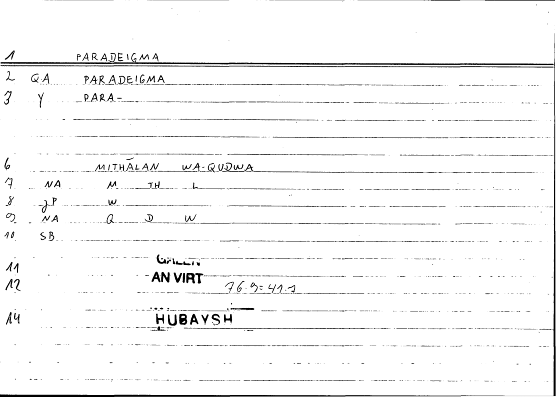 1 PARADEIGMA
2 QA PARADEIGMA
3 Y PARA-
6 MITHĀLAN WA-QUDWA
7 NA M TH L
8 JP W
9 NA Q D W
10 SB
11 GALEN
12 AN VIRT 76.9=41.1
14 HUBAYSH